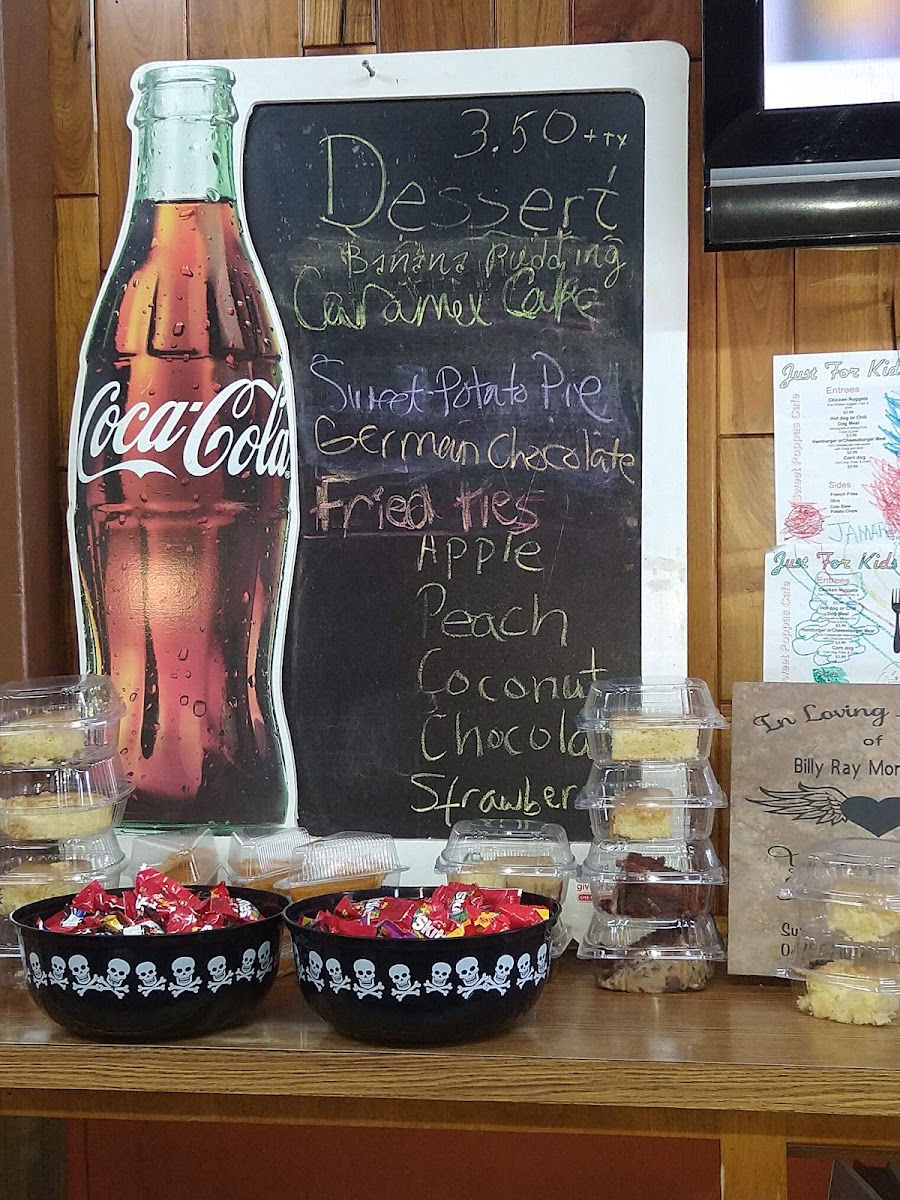 3.50 + TX
Dessert
Banana Pudding
Caramel Cake
Sweet Potato Pie
German Chocolate
Fried Pies
Apple
Peach
Coconut
Chocola
Strawber
Coca-Cola
Just For Kids
Entrees
Chicken Nuggets
$3.99
Hot dog or Chili
Dog Meal
$3.99
Hamburger or Cheeseburger Meal
$3.99
Corn dog
$3.99
Sides
French Fries
Okra
Cole Slaw
Potato Chips
Sweet Poppas Cafe
JAMAR
Just For Kids
Entrees
Chicken Nuggets
Hot dog or Chili
Dog Meal
Hamburger or Cheeseburger Meal
Corn dog
$3.99
Sweet Poppas Cafe
In Loving
of
Billy Ray Mor
Su
Skittles